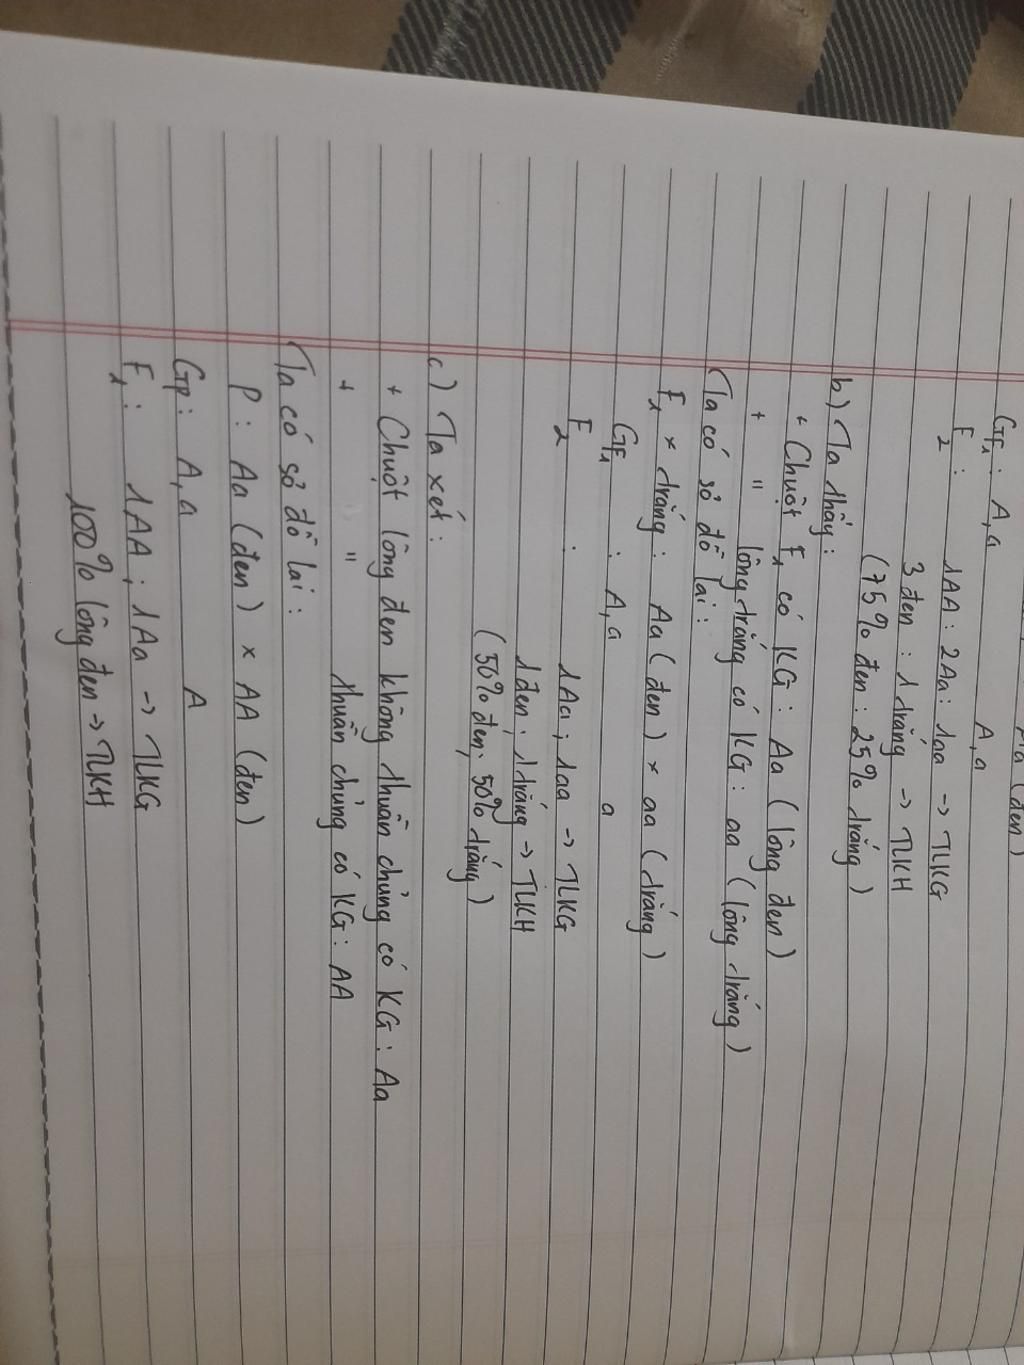 (đen)
GF1 : A,a A,a
F2 : 1AA : 2Aa : 1aa → TLKG
3 đen : 1 trắng → TLKH
(75% đen : 25% trắng)
b) Ta thấy :
+ Chuột F1 có KG : Aa (lông đen)
+ " lông trắng có KG : aa (lông trắng)
Ta có sơ đồ lai :
F1 × trắng : Aa (đen) × aa (trắng)
GF1 : A,a a
F2 : 1Aa ; 1aa → TLKG
1 đen ; 1 trắng → TLKH
(50% đen ; 50% trắng)
c) Ta xét :
+ Chuột lông đen không thuần chủng có KG : Aa
+ " thuần chủng có KG : AA
Ta có sơ đồ lai :
P : Aa (đen) × AA (đen)
Gp : A,a A
F1 : 1AA ; 1Aa → TLKG
100% lông đen → TLKH